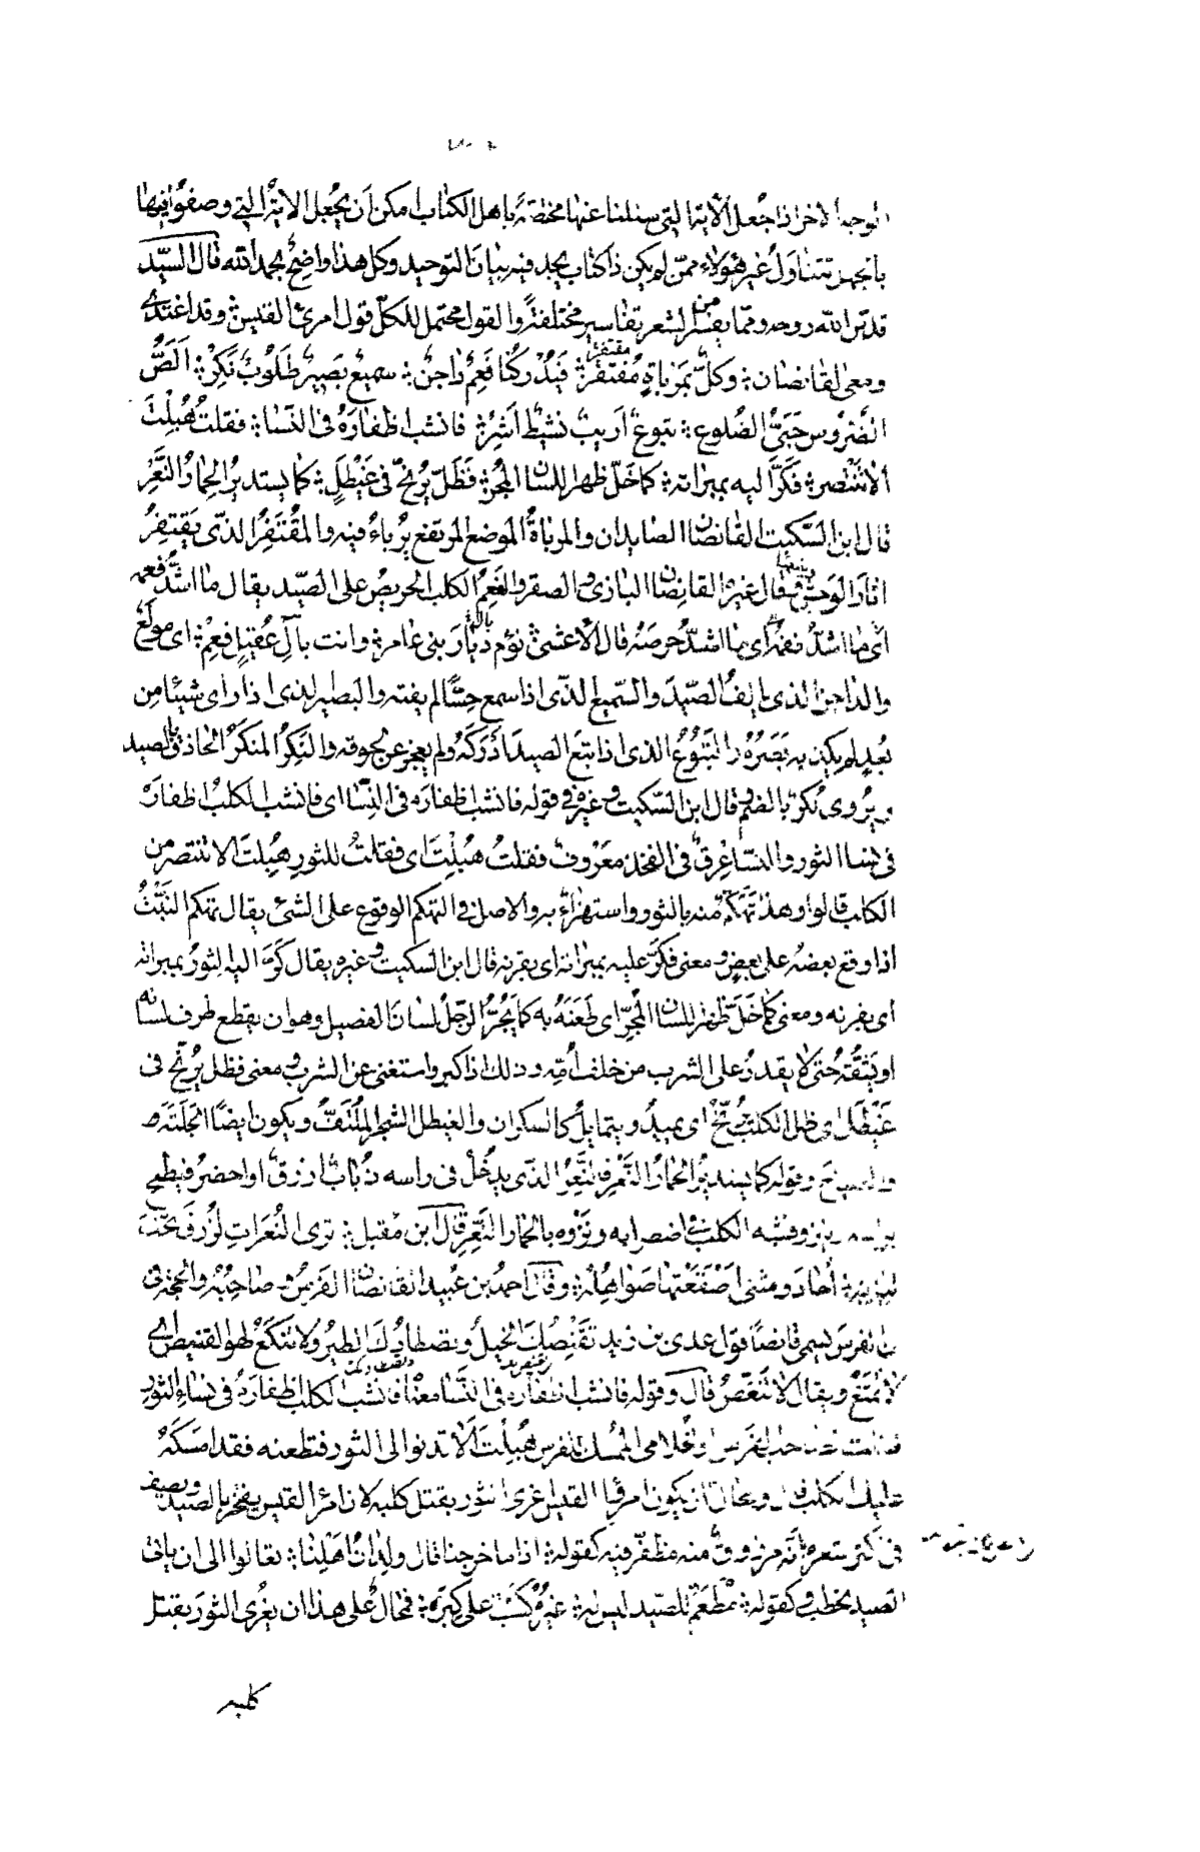 الوجه الاخر اذا جعل الآية التى سئلنا عنها مختصّة باهل الكتاب امكن ان يجعل الآية التى وصفوا فيها
بالجهر تتناول غير هؤلاء ممن لم يكن ذا كتاب يجد فيه بيان التوحيد وكل هذا واضح بحمد الله قال السيّد
قدّس الله روحه ومما يفسّر من الشعر تفاسير مختلفة والقول محتمل للكلّ قول امرئ القيس وقد اغتدى
ومعى القانصان وكلّ بمرباة مقتفر فيدركنا فَغِمٌ داجنٌ سميع بصير طلوبٌ نَكِرْ الصّ
الضّروس حَبِىُّ الضُلوع تبوعٌ اريب نشيطٌ اَشِرْ فانشب اظفارَهُ فى النَّسا فقلتُ هُبِلْتَ
ألا تَنْتَصِر فَكَرَّ اليه بمبراته كما خَلَّ ظهرَ اللسان المُجِرّ فَظَلَّ يُرنِّحُ فى غَيْطَلٍ كما يستدير الحمارُ النَّعِرْ
قال ابن السّكيت القانصان الصايدان والمرباةُ الموضع المرتفع يُرباءُ فيه والمُقْتَفِرُ الذّى يَقْتفِرُ
اثار الوحش ويتبعها وقال غيره القانصان البازى والصقر والفَغِمُ الكلب الحريص على الصّيد يقال ما اشدّ فغمه
اى ما اشدّ حرصَه قال الاعشى تؤم ديار بنى عامر وانت بآل عُقيلٍ فَغِمْ اى مولَعٌ
والداجن الذى يالفُ الصّيدَ والسّميع الذّى اذا سمع حِسًّا لم يفته والبصير الذى اذا راى شيئا من
بُعدٍ لم يكذب به بَصَرُهُ والتَبُوُعُ الذى اذا تبع الصيدَ ادْرَكَهُ ولم يعجز عن لحوقه والنَّكِرُ المنكَرُ الحاذق بالصيد
ويُروى نُكُرٌ بالضم وقال ابن السّكيت وغيره فى قوله فانشب اظفاره فى النِّسا اى فانشب الكلب اظفارَه
فى نسا الثور والنسا عِرقٌ فى الفخذ معروف فقلتُ هُبِلْتَ اى فقلتُ للثور هُبِلتَ الا تنتصر من
الكلب قالوا وهذا تهكّمٌ منه بالثور واستهزاءٌ به والاصل فى التهكم الوقوع على الشئ يقال تهكم البَيْتُ
اذا وقع بعضهُ على بعضٍ ومعنى فكرَّ عليه بمبراته اى بقرنه قال ابن السكيت وغيره يقال كَرَّ اليه الثورُ بمبراته
اى بقرنه ومعنى كما خَلَّ ظهرَ اللسان المُجِرّ اى طَعَنَهُ به كما يُجِرُّ الرّجلُ لسان الفصيل وهو ان يقطع طرف لسانه
او يَشُقَّهُ حتى لا يقدر على الشرب من خلف اُمّه وذلك اذا كبر واستغنى عن الشرب ومعنى فظل يُرنّح فى
غَيْطَلٍ اى ظل الكلب يُرنِّحُ اى يميدُ ويتمايل كالسكران والغيطل الشجر المُلْتَفُّ ويكون ايضًا الجَلَبَةَ
والصياح وقوله كما يستدير الحمارُ النَّعِر فالنَّعِرُ الذّى يدخل فى راسه ذُبابٌ ازرقٌ او اخضرُ فيطمح
براسه وينزو فشبه الكلب فى اضطرابه ونَزْوه بالحمار النَّعِرِ قال ابن مُقبل ترى النُعَراتِ الزُرقَ تحتَ
لبانه اُحادَ ومثنى اَصْعَقَتها صواهِلُه وقال احمدُ بن عُبيد القانصان الفرس وصاحبُه والحجّةُ فى
ان الفرسَ يسمى قانصًا قول عدى بن زيد تَقْنِصُكَ الخيلُ وتصطادُكَ الطيرُ ولا تَنْكَعُ لهوَ القنيص اى
لا تُمْنَعُ ويقال لا تُنَغَّصُ قال وقوله فانشب اظفاره فى النَّسا معناه فانشب الكلب اظفارَهُ فى نساءِ الثور
فقلت لصاحب الفرس او لغلامى الممسك للفرس هُبِلْتَ اَلا تدنوا الى الثور فتطعنه فقد امسكَهُ
عليك الكلب قال ومحال ان يكون امرؤ القيس اغرى الثور بقتل كلبه لان امرَأ القيس يفخر بالصيد ويصف
فى اكثر شعره انّه مرزوقٌ منه مظفّر فيه كقوله اذا ما خرجنا قال ولدانُ اهلنا تعالوا الى ان ياتنا
الصيد نحطب وكقوله مُطْعَمٌ للصّيد ليس له غيرَهُ كَسْبٌ على كِبَرِهْ فمحالٌ على هذا ان يغرى الثورَ بقتل
كلبه